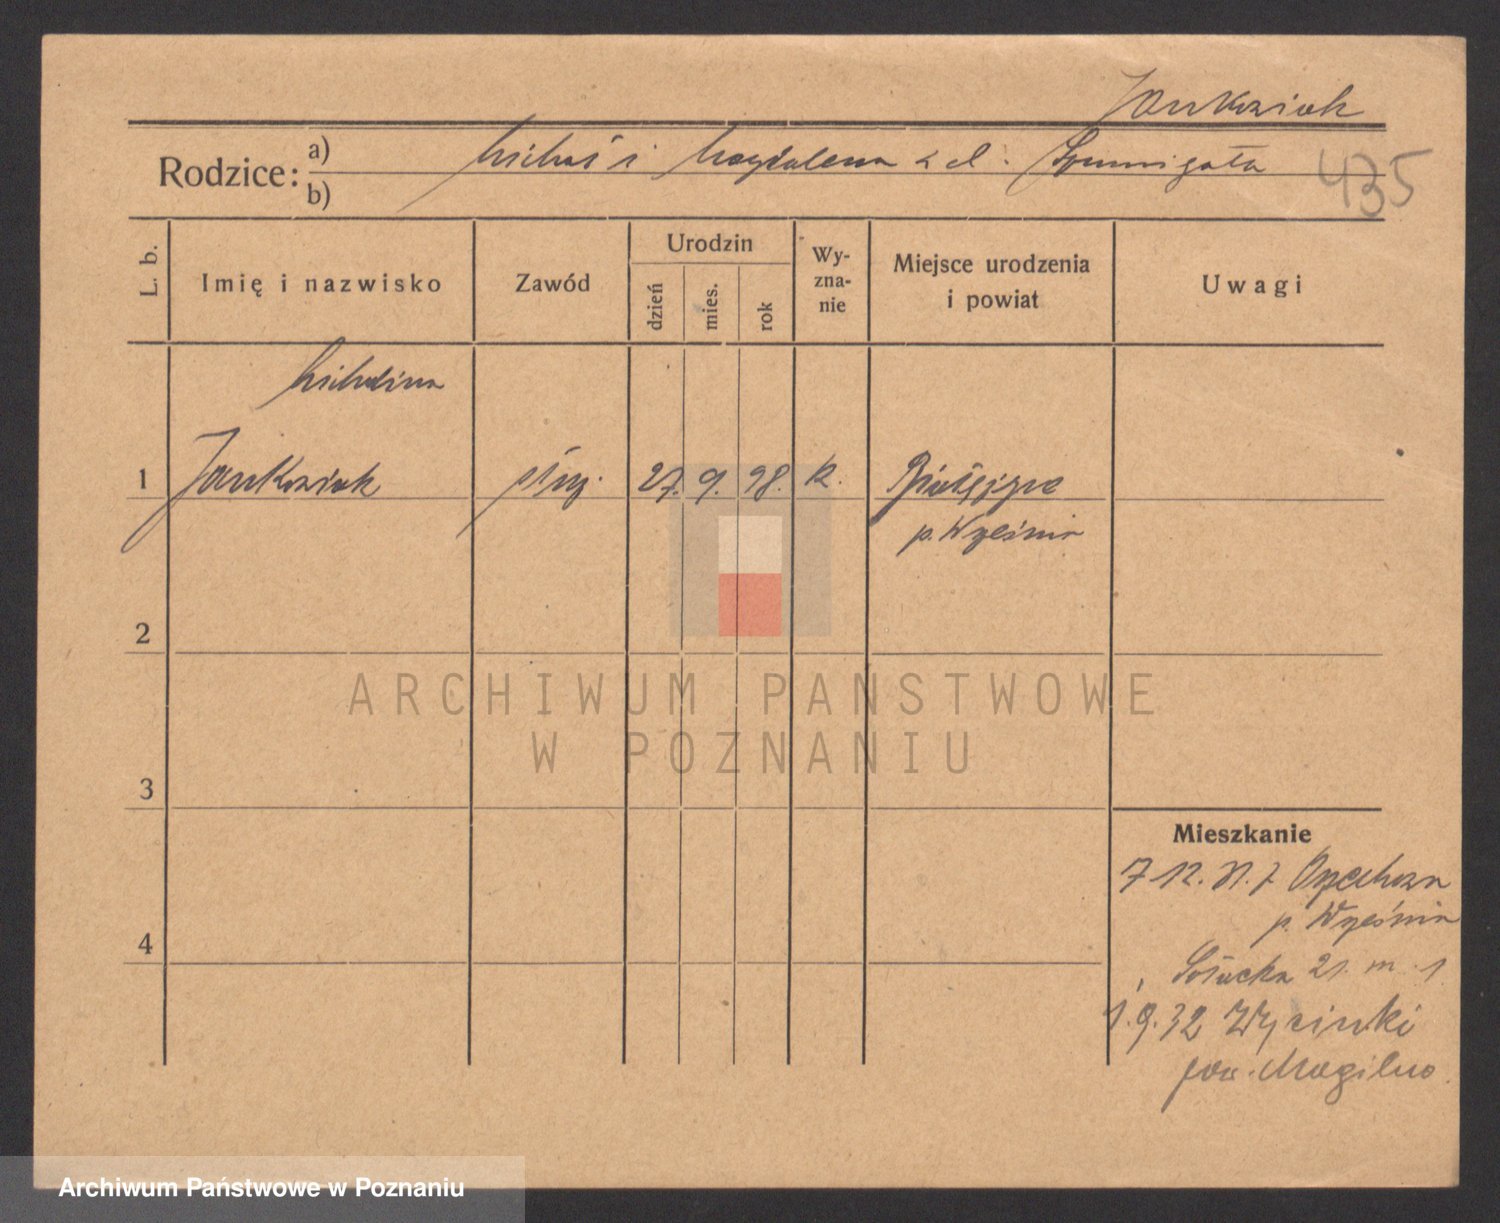 Jankowiak
Rodzice: a) Michał i Magdalena z d. Szumigała
b)
435
L. b.
Imię i nazwisko
Zawód
Urodzin
dzień
mies.
rok
Wy-
zna-
nie
Miejsce urodzenia
i powiat
Uwagi
Michalina
1 Jankowiak służ. 27. 9. 98. k.
p. Września
2
ARCHIWUM PAŃSTWOWE
W POZNANIU
3
Mieszkanie
7 12. 31. z Orzechowa
p. Września
4
Sołacka 21. m. 1
1.9.32 Wycinki
pow. Mogilno
Archiwum Państwowe w Poznaniu